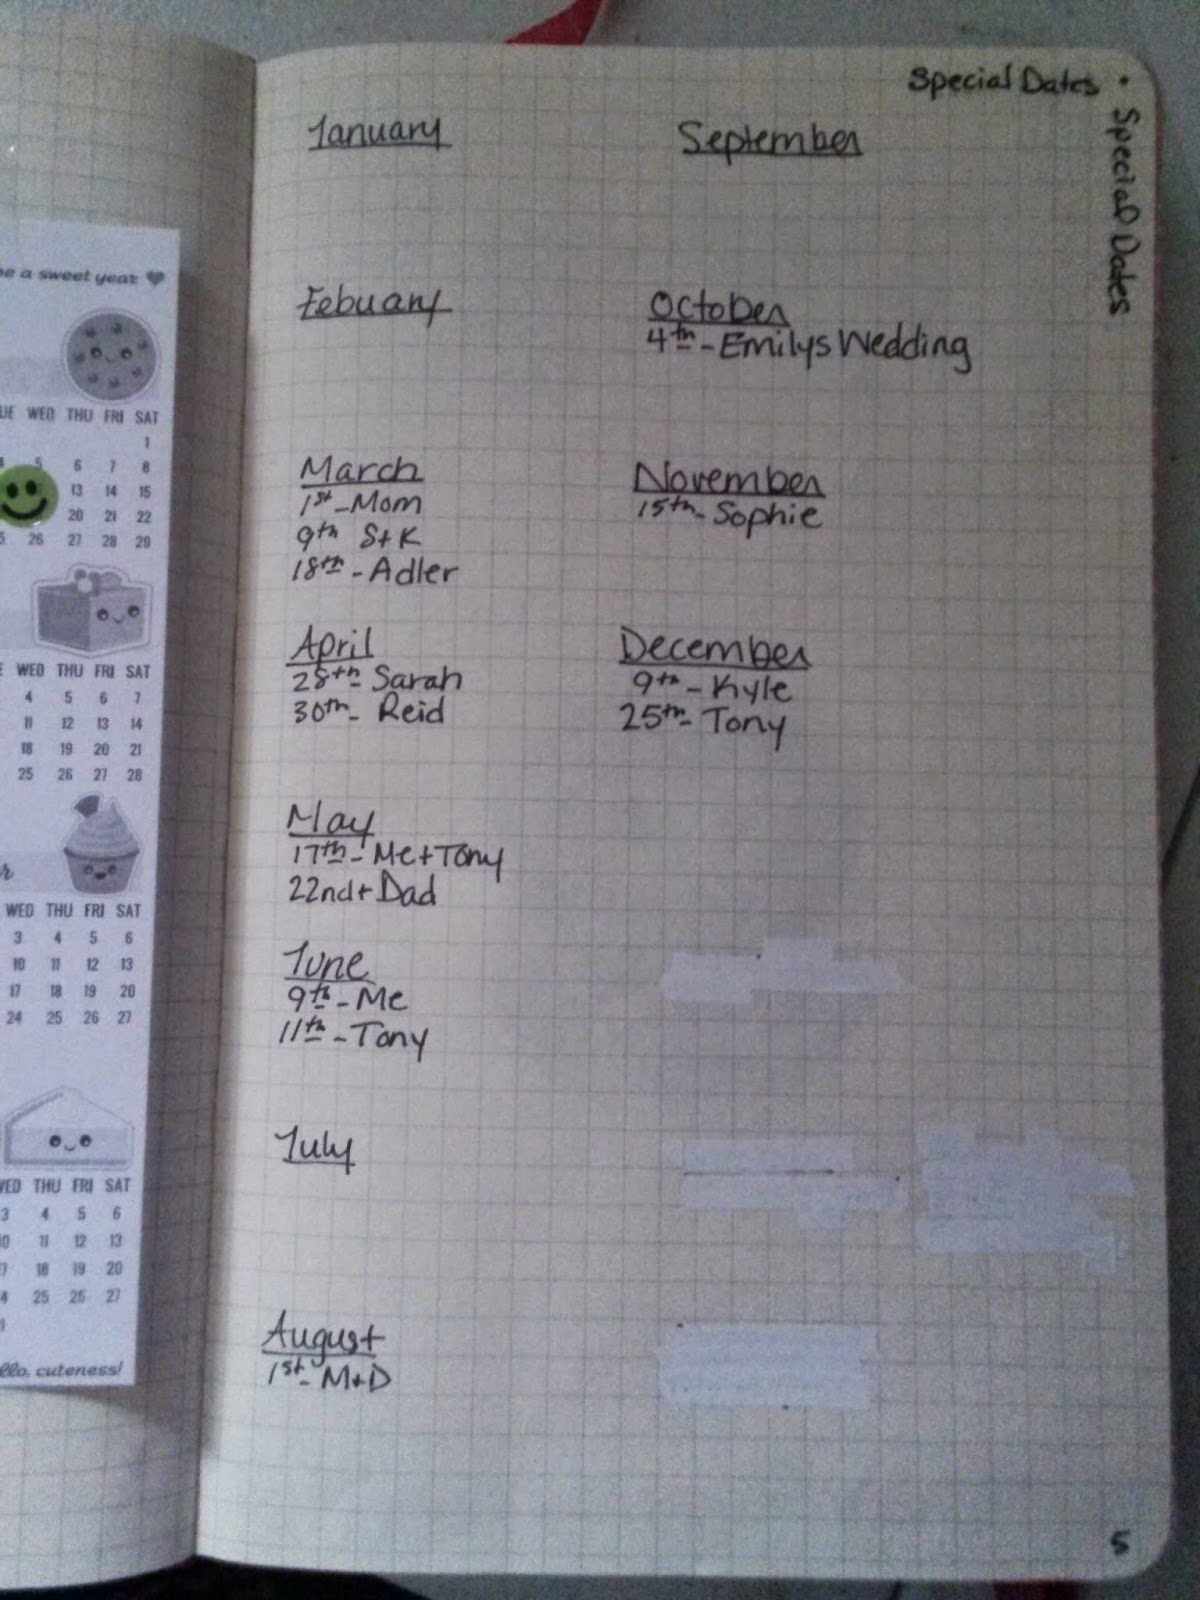 Special Dates
Special Dates
January
Febuary
March
1st - Mom
9th S+K
18th - Adler
April
28th Sarah
30th - Reid
May
17th - Me + Tony
22nd + Dad
June
9th - Me
11th - Tony
July
August
1st - M+D
September
October
4th - Emilys Wedding
November
15th - Sophie
December
9th - Kyle
25th - Tony
5
a sweet year
WED THU FRI SAT
1
5 6 7 8
13 14 15
20 21 22
26 27 28 29
WED THU FRI SAT
4 5 6 7
11 12 13 14
18 19 20 21
25 26 27 28
WED THU FRI SAT
3 4 5 6
10 11 12 13
17 18 19 20
24 25 26 27
THU FRI SAT
3 4 5 6
11 12 13
18 19 20
25 26 27
cuteness!